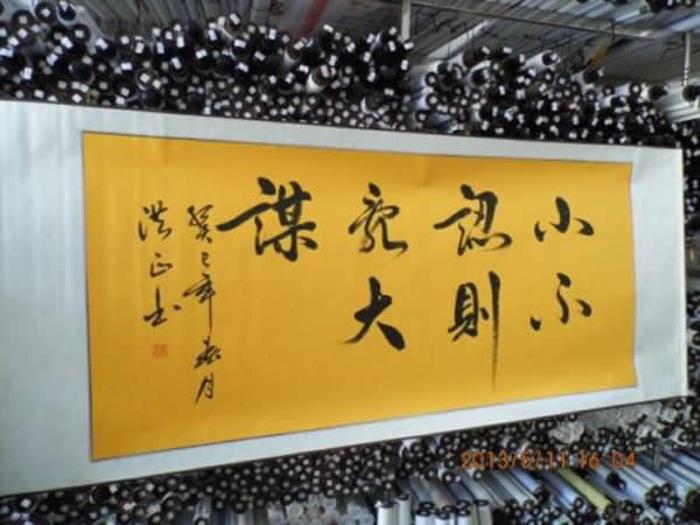 小不
認則
亂大
謀
癸巳年春月
洪正书
2013/5/11 16:04